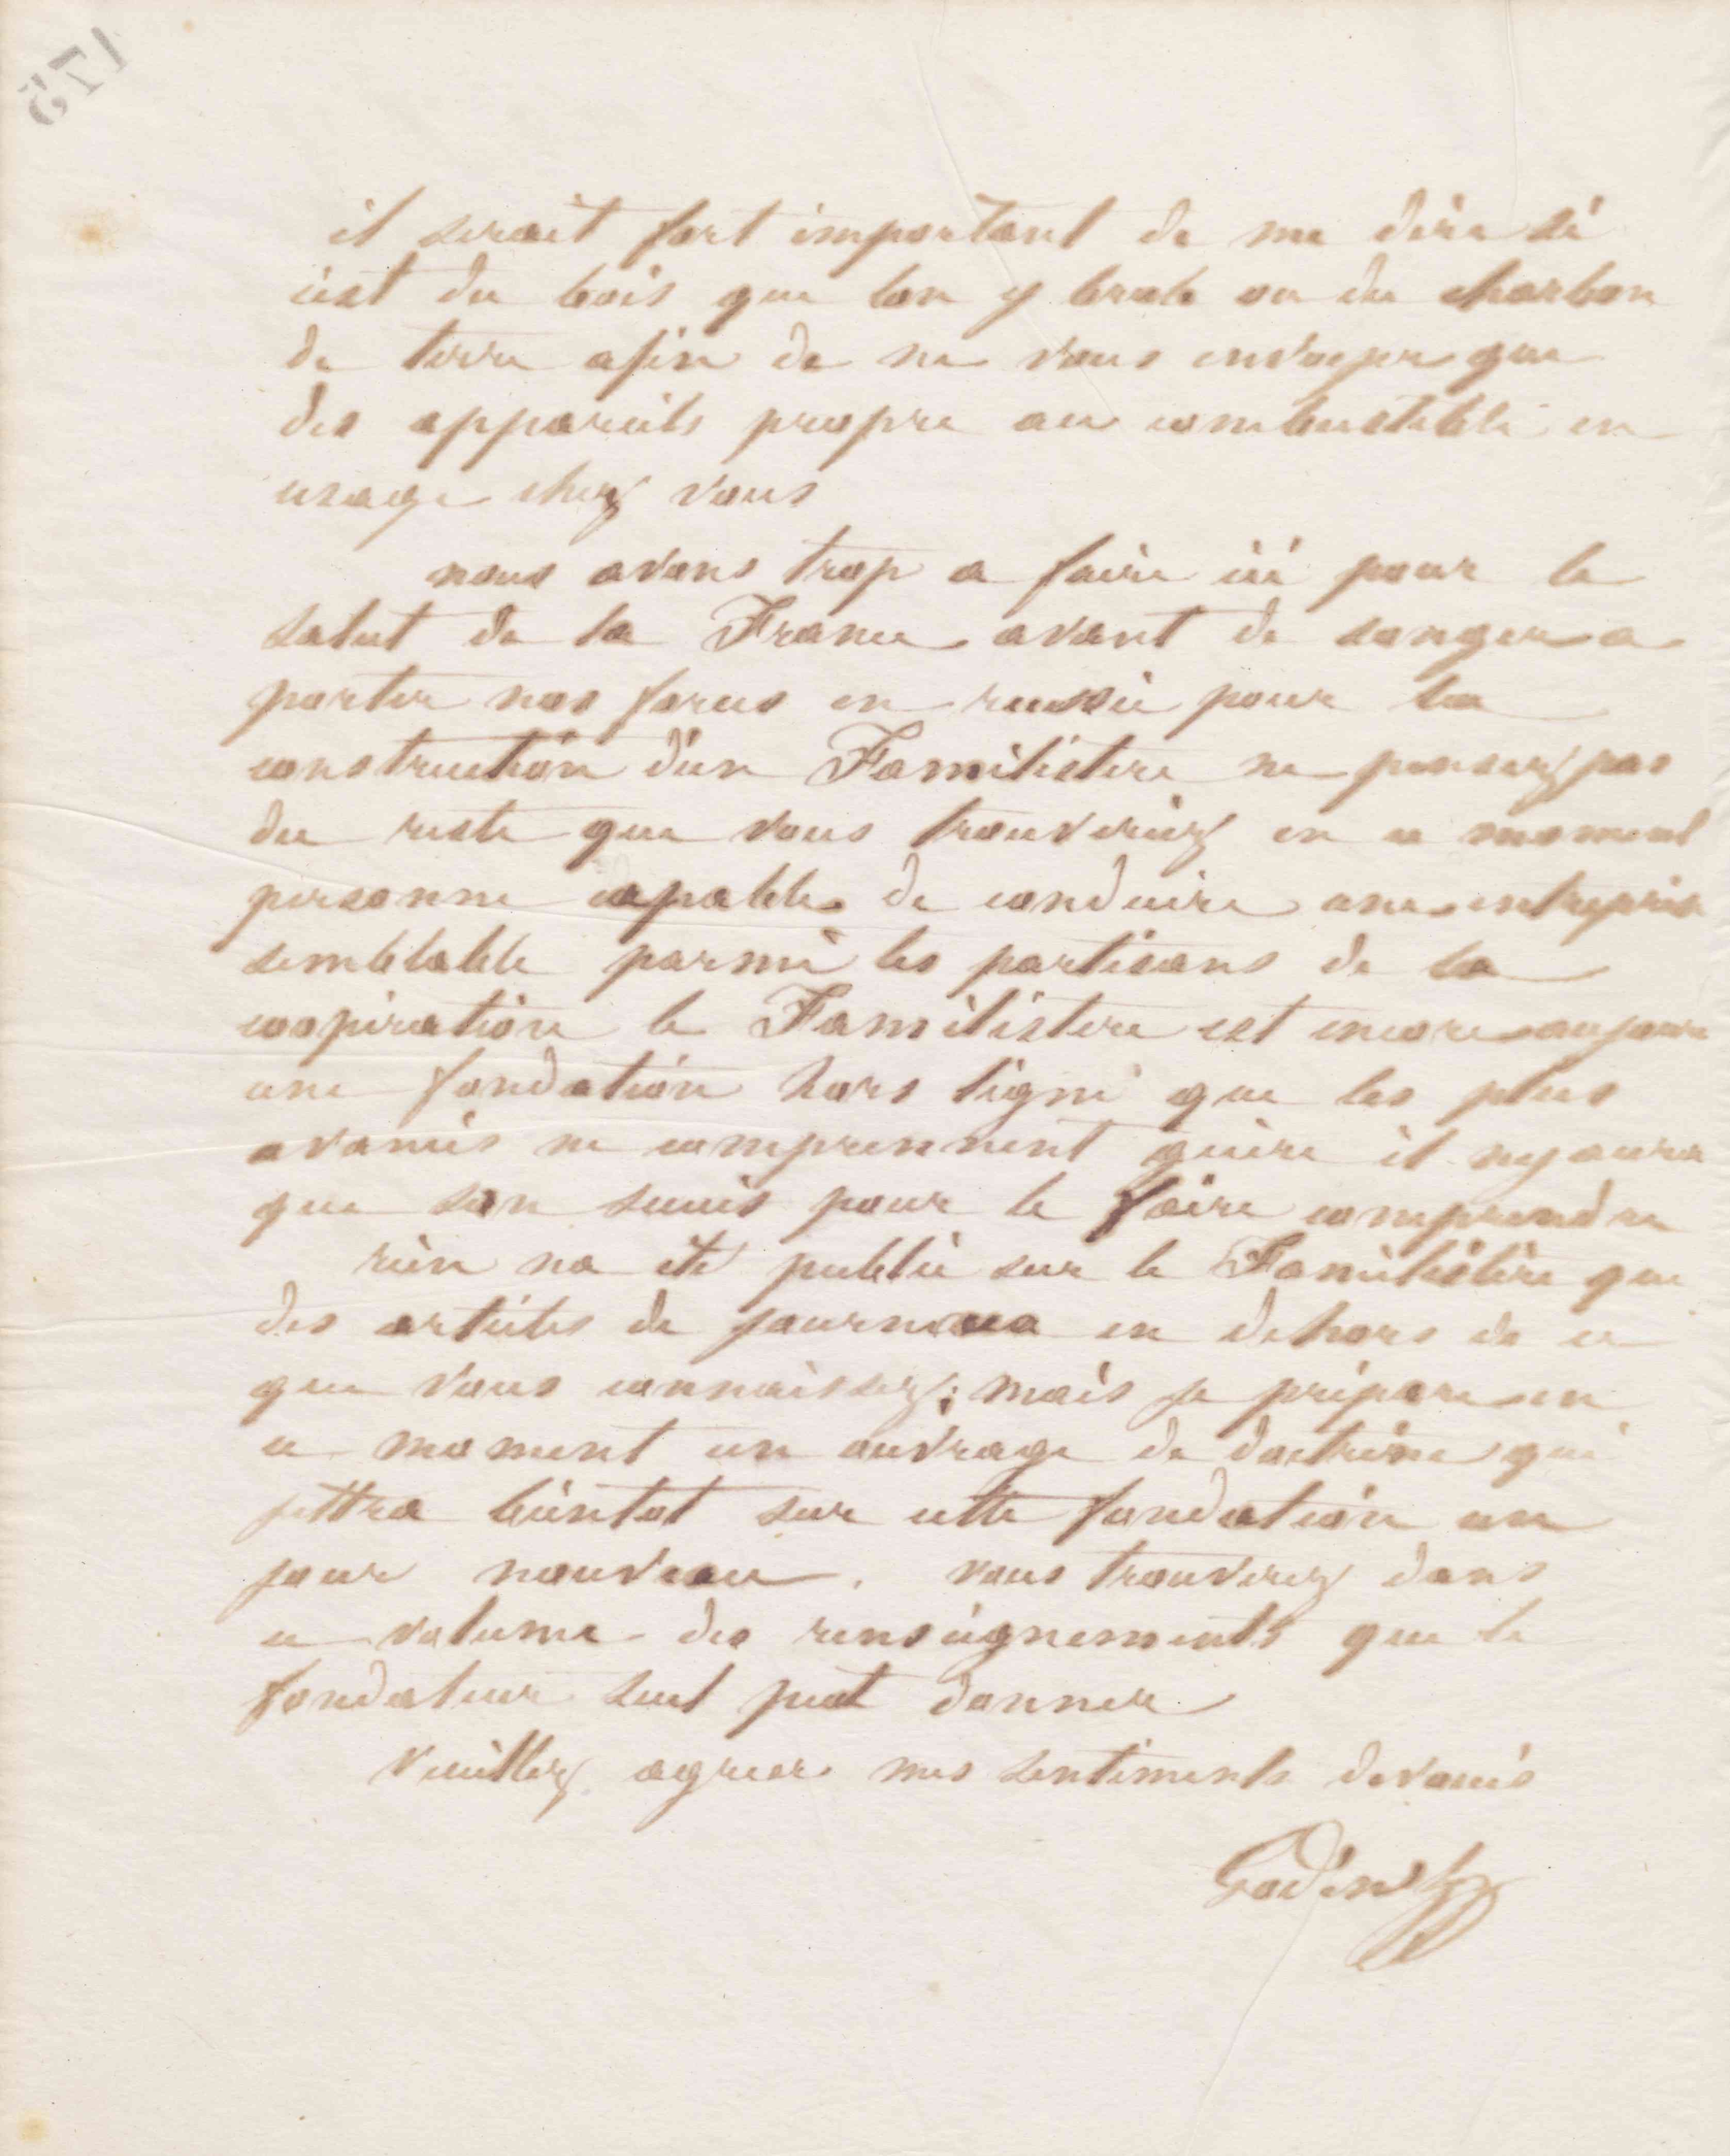 175
il serait fort important de me dire si
cest du bois que lon y brule ou du charbon
de terre afin de ne vous envoyer que
des appareils propre au combustible en
usage chez vous
nous avons trop a faire ici pour le
salut de la France avant de songer a
porter nos forces en russie pour la
construction d'un Familistere ne pensez pas
du reste que vous trouveriez en ce moment
personne capable de conduire une entreprise
semblable parmi les partisans de la
coopération le Familistere est encore
une fondation hors ligne que les plus
avancés ne comprennent guère il ny aura
que son succès pour le faire comprendre
rien na été publié sur le Familistère que
des articles de journaux en dehors de ce
que vous connaissez; mais je prépare en
ce moment un ouvrage de doctrine qui
jettra bientot sur cette fondation un
jour nouveau. vous trouverez dans
ce volume des renseignements que le
fondateur seul peut donner
Veuillez agreer mes sentiments devoués
Godin